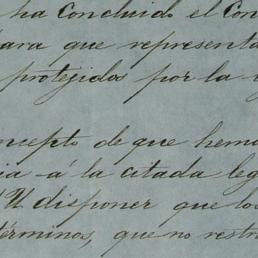 ha Concluido el Con
para que representa
protejidos por la
ncepto de que hemo
ia á la citada leg
disponer que los
términos, que no restr